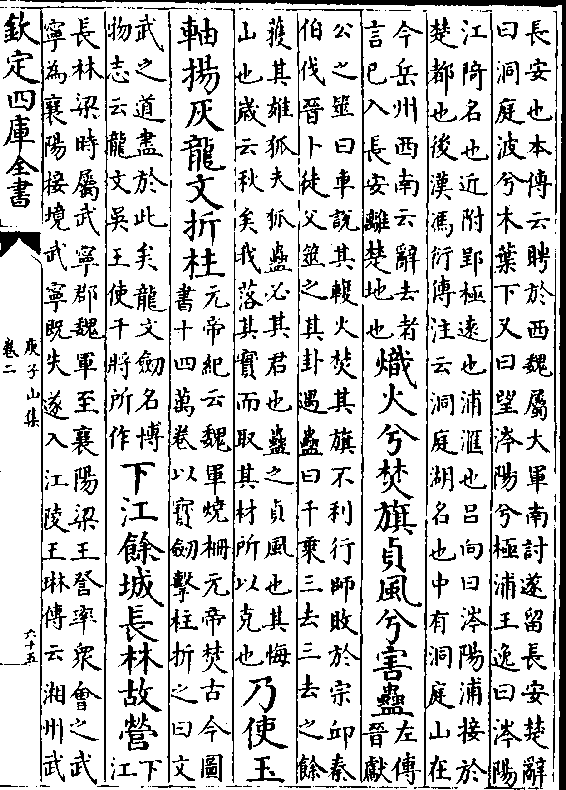 長安也本傳云聘於西魏屬大軍南討遂留長安楚辭
曰洞庭波兮木葉下又曰望涔陽兮極浦王逸曰涔陽
江碕名也近附郢極遠也浦滙也吕向曰涔陽浦接於
楚都也後漢馮衍傳注云洞庭湖名也中有洞庭山在
今岳州西南云辭去者
言已入長安離楚地也
熾火兮焚旗貞風兮害蠱
左傳
晉獻
公之筮曰車說其輹火焚其旗不利行師敗於宗邱秦
伯伐晉卜徒父筮之其卦遇蠱曰千乘三去三去之餘
獲其雄狐夫狐蠱必其君也蠱之貞風也其悔
山也歲云秋矣我落其實而取其材所以克也
乃使玉
軸揚灰龍文折柱
元帝紀云魏軍燒柵元帝焚古今圖
書十四萬卷以寳劒擊柱折之曰文
武之道盡於此矣龍文劒名博
物志云龍文吳王使干將所作
下江餘城長林故營
下
江
長林梁時屬武寧郡魏軍至襄陽梁王詧率衆會之武
寧為襄陽接境武寧既失遂入江陵王琳傳云湘州武
欽定四庫全書
庾子山集
卷二
六十五